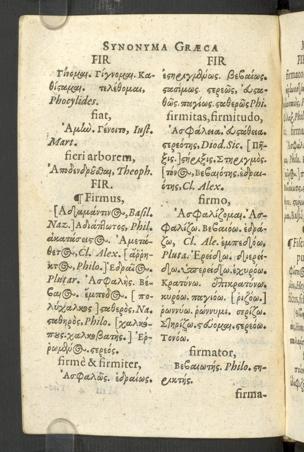 SYNONYMA GRÆCA
FIR
Γίνομαι. Γίγνομαι. Κα-
θίσαμαι. πελέθομαι,
Phocylides.
fiat,
Ἀμὼ. Γένοιτο, Iust.
Mart.
fieri arborem,
Ἀποδενδρῦσθαι, Theoph.
FIR.
¶ Firmus,
Basil.
Naz.] Ἀδιάπωτος, Phil.
Ἀμετά-
θετος, Cl. Alex. [ἄρρη-
κτος, Philo.] Ἑδραῖος,
Plutar. Ἀσφαλής. Βέ-
βαιος. ἔμπεδος. [πο-
λύχαλκος] σταθερός, Na.
σταθηρός, Philo. [χαλκό-
πους. χαλκοβατής.] Ἐρ-
ρωμένος. στερεός.
firmè & firmiter,
Ἀσφαλῶς. ἑδραίως.
FIR
ἐστηριγμένως. Βεβαίως.
στασίμως. στερεῶς, εὐστα-
θῶς. παγίως. σταθερῶς Phi.
firmitas, firmitudo,
Ἀσφάλεια. εὐστάθεια.
στερεότης, Diod. Sic. [Πῆ-
ξις.] στήριξις. Στηριγμός.
Βεβαιότης. ἑδραι-
ότης, Cl. Alex.
firmo,
Ἀσφαλίζομαι. Ἀσ-
φαλίζω. Βεβαιόω. ἑδρά-
ζω, Cl. Ale. ἐμπεδόω,
Pluta. Ἐρείδω.
Κρατύνω. ἐπικρατύνω.
κυρόω. παγιόω. [ῥιζόω.]
ῥωννύω. ῥώννυμι. στηρίζω.
Στηρίζω.
Τονόω.
firmator,
Βεβαιωτής. Philo. στη-
ρικτής.
firma-